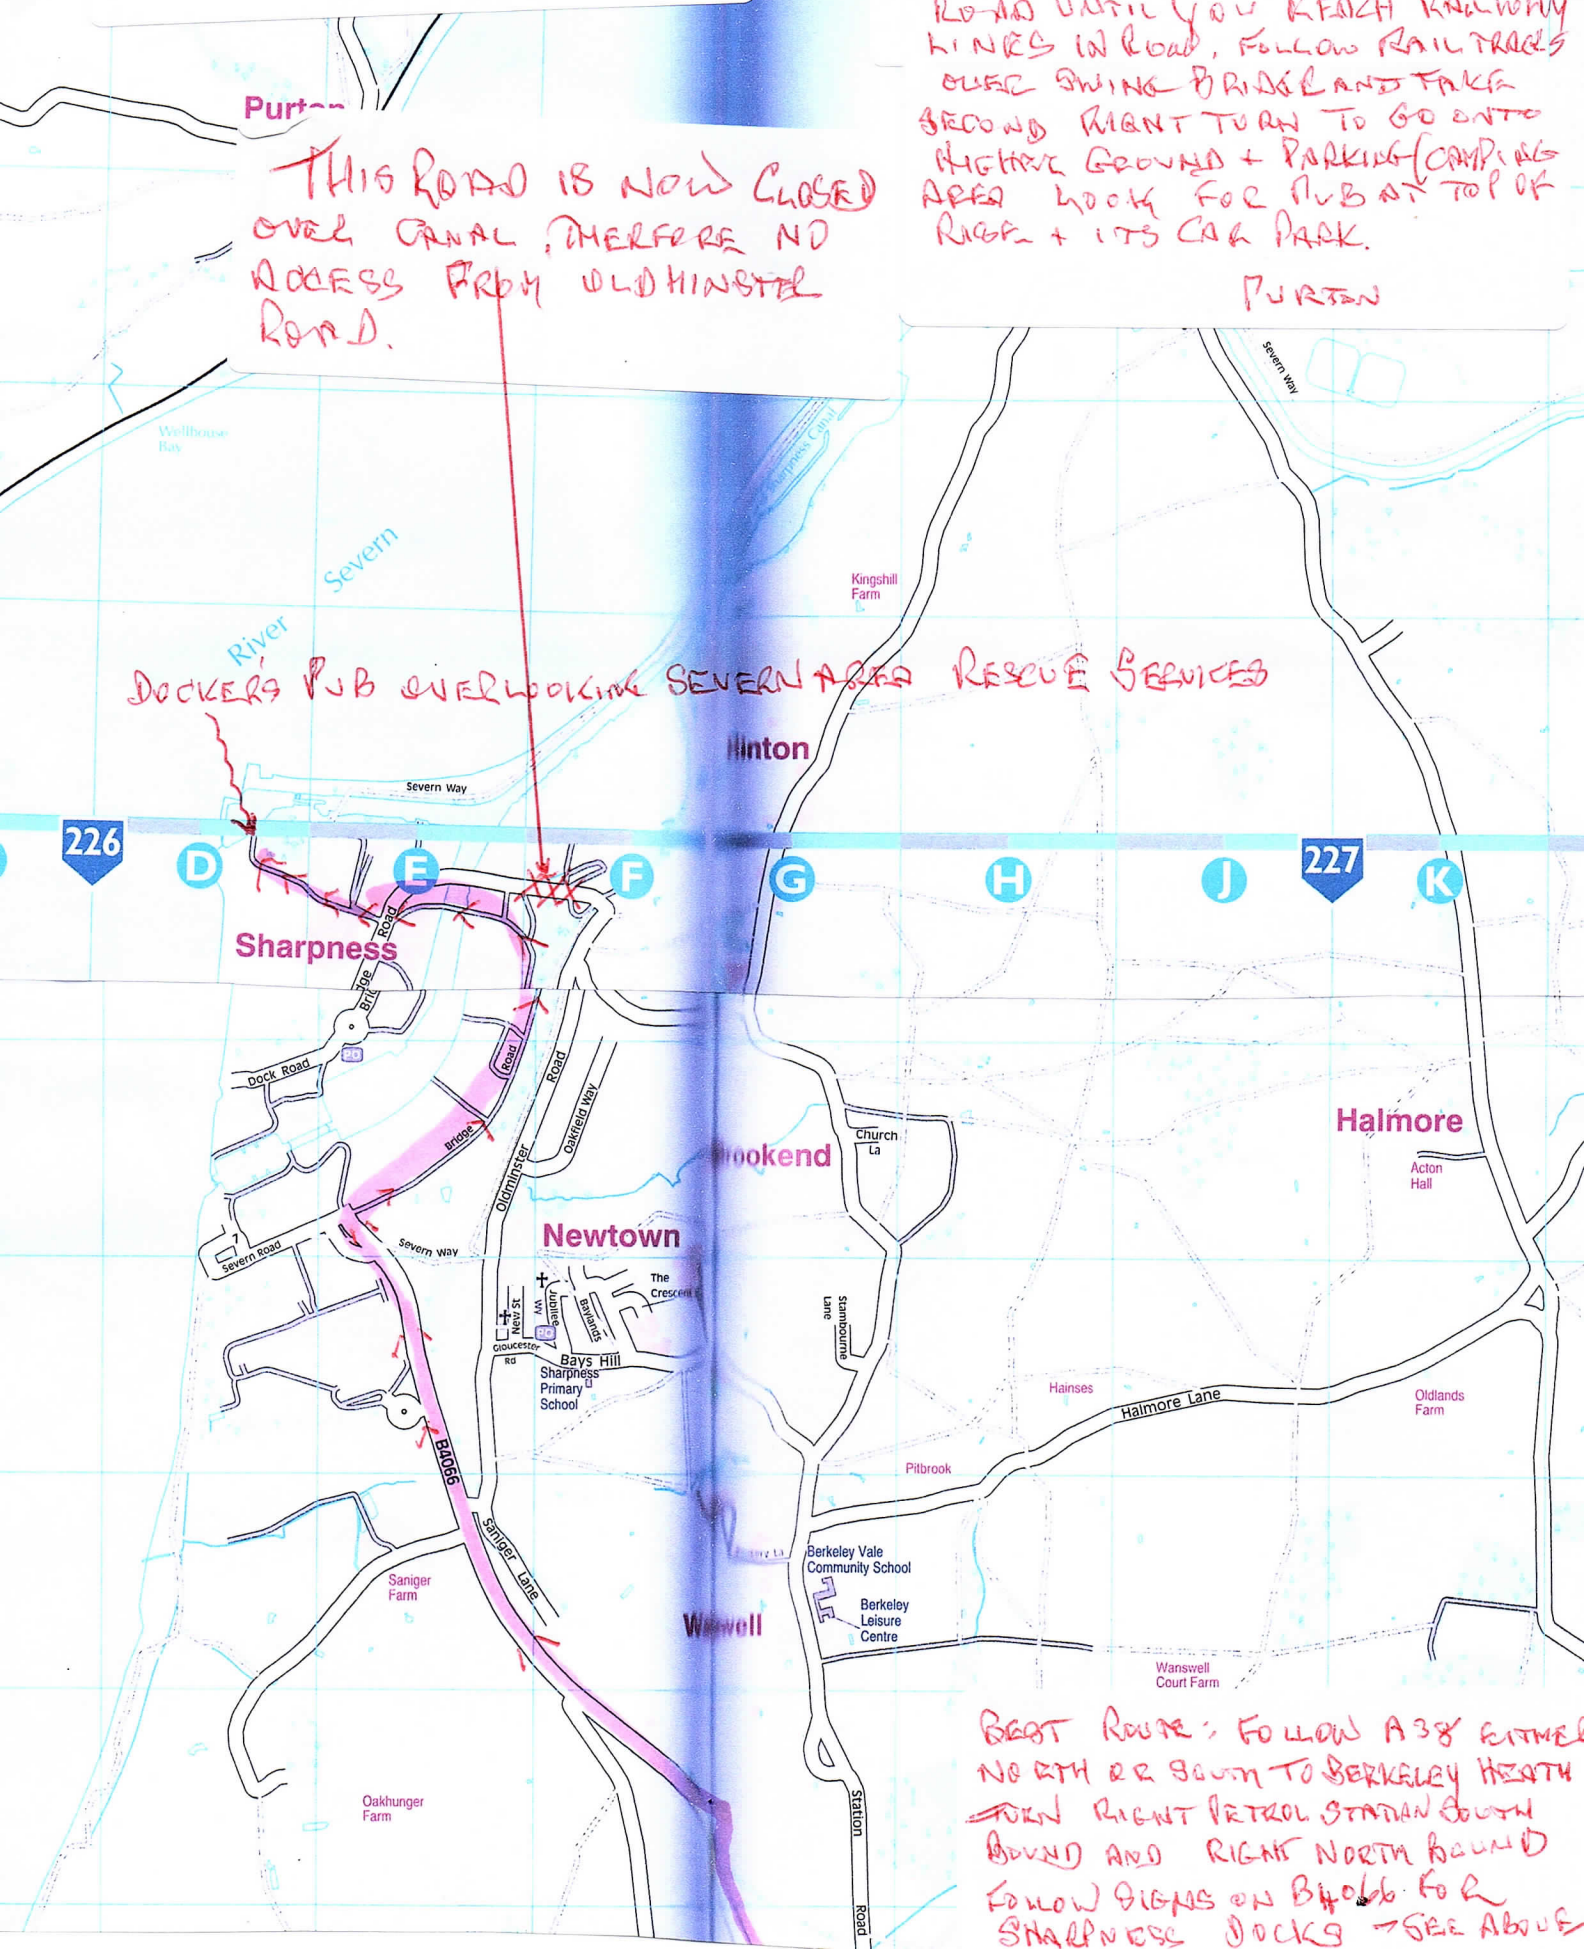 ROAD UNTIL YOU REACH RAILWAY
LINES IN ROAD, FOLLOW RAIL TRACKS
OVER SWING BRIDGE AND TAKE
SECOND RIGHT TURN TO GO ONTO
HIGHER GROUND + PARKING/CAMPING
AREA LOOK FOR PUB AT TOP OF
RIGE + ITS CAR PARK.
PURTON
Purton
THIS ROAD IS NOW CLOSED
OVER CANAL, THERFORE NO
ACCESS FROM OLDMINSTER
ROAD.
Severn Way
Wellhouse
Bay
Sharpness Canal
River Severn
Kingshill
Farm
DOCKER'S PUB OVERLOOKING SEVERN AREA RESCUE SERVICES
Hinton
Severn Way
226
D
E
F
G
H
J
227
K
Sharpness
Road
Bridge
Dock Road
PO
Road
Road
Oakfield Way
Bridge
Oldminster
Brookend
Church
La
Halmore
Acton
Hall
Newtown
Severn Way
Severn Road
The
Crescent
New St
Jubilee
Wy
Baylands
PO
Gloucester
Rd
Bays Hill
Sharpness
Primary
School
Stambourne
Lane
Hainses
Halmore Lane
Oldlands
Farm
B4066
Pitbrook
Saniger Lane
Saniger
Farm
Berkeley Vale
Community School
Berkeley
Leisure
Centre
Wanswell
Wanswell
Court Farm
Oakhunger
Farm
Station
Road
BEST ROUTE: FOLLOW A38 EITHER
NORTH OR SOUTH TO BERKELEY HEATH
TURN RIGHT PETROL STATION SOUTH
BOUND AND RIGHT NORTH BOUND
FOLLOW SIGNS ON B4066 FOR
SHARPNESS DOCKS - SEE ABOVE